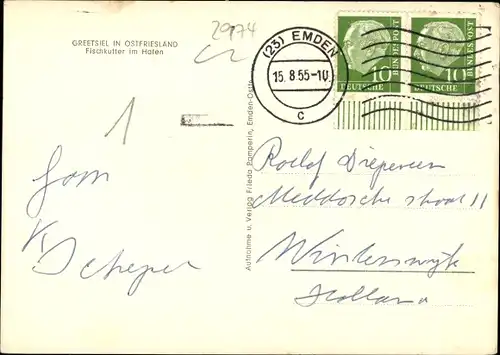 GREETSIEL IN OSTFRIESLAND
Fischkutter im Hafen
2974
(23) EMDEN
15.8.55-10
c
10
DEUTSCHE
BUNDESPOST
10
DEUTSCHE
BUNDESPOST
1
Fam
K Scheper
Aufnahme u. Verlag Frieda Pamperin, Emden-Ostfr.
Roelof
Meddosche straat 11
Winterswijk
Holland